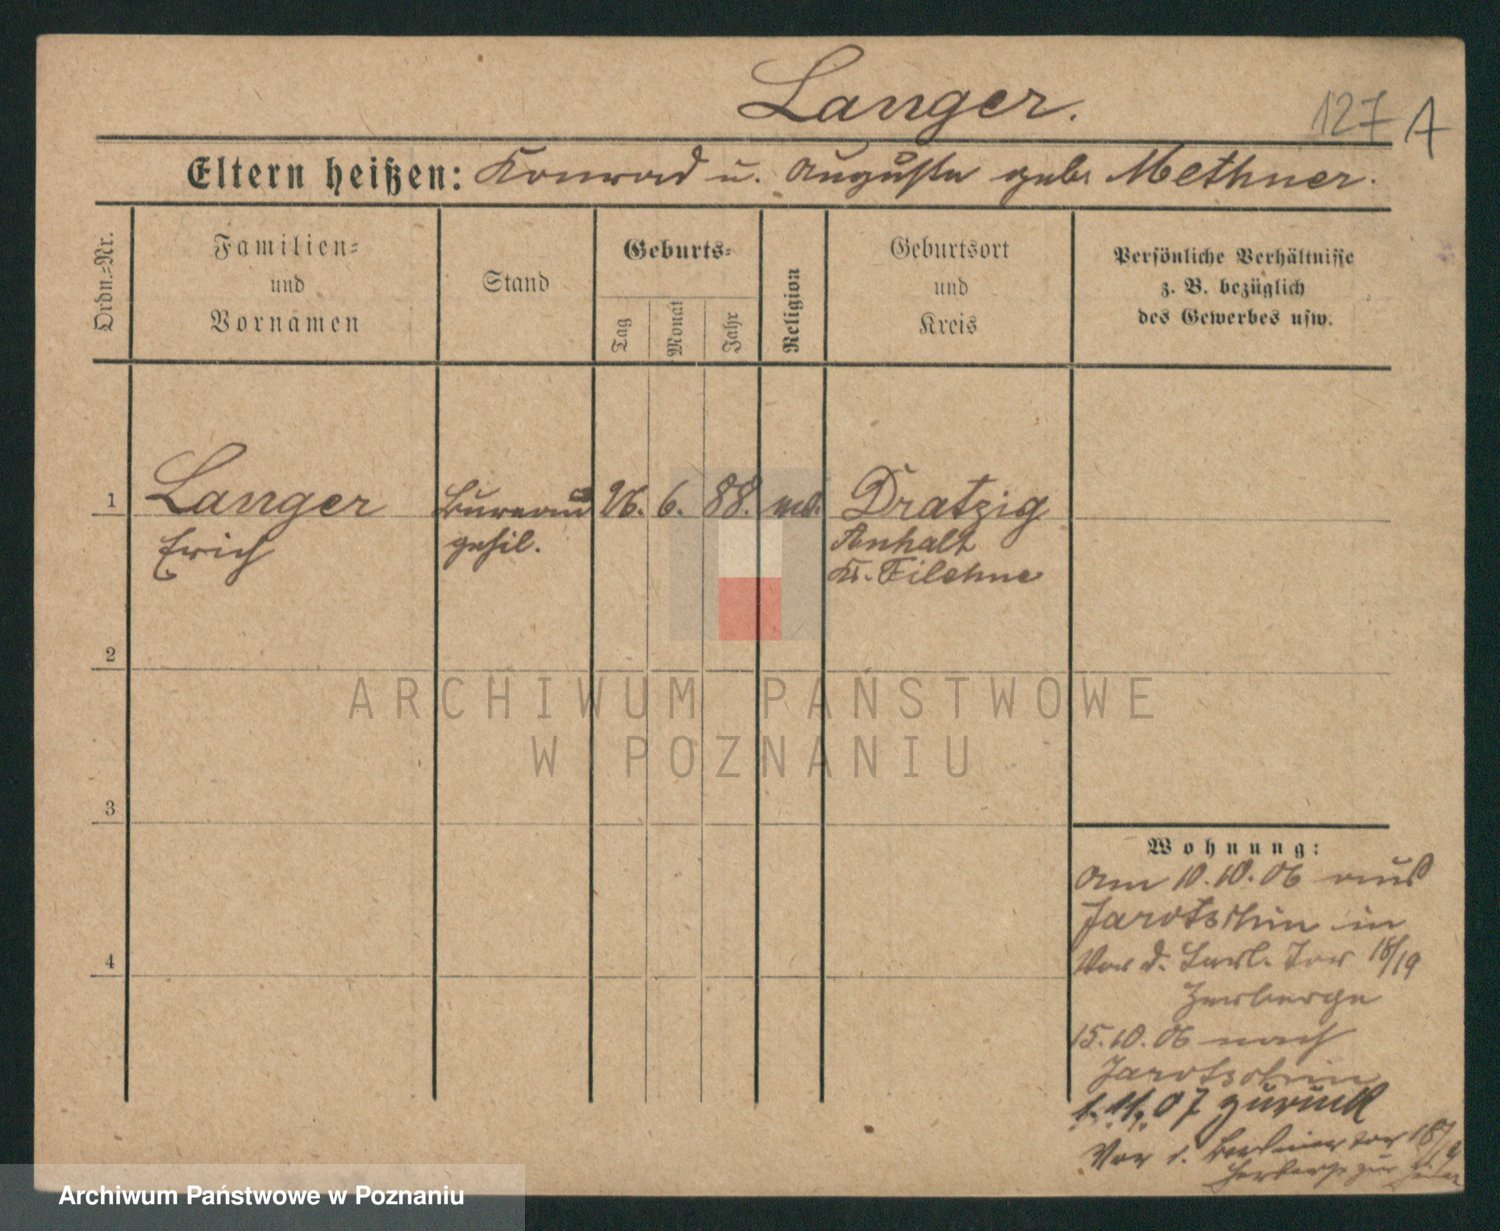 Langer.
127 A
Eltern heißen: Konrad u. Auguste geb. Methner.
Ordn.=Nr.
Familien=
und
Vornamen
Stand
Geburts=
Tag
Monat
Jahr
Religion
Geburtsort
und
Kreis
Persönliche Verhältnisse
z. B. bezüglich
des Gewerbes usw.
1
Langer
Erich
Bureau
gehil.
26. 6. 88.
Dratzig
Anhalt
Kr. Filehne
2
ARCHIWUM PAŃSTWOWE
W POZNANIU
3
Wohnung:
Am 10.10.06 aus
Jarotschin in
Vor d. Berl. Tor 18/19
Herberge
15.10.06 nach
Jarotschin
1.11.07 zurück
Vor d. Berliner Tor 18/19
Herberge zur
4
Archiwum Państwowe w Poznaniu